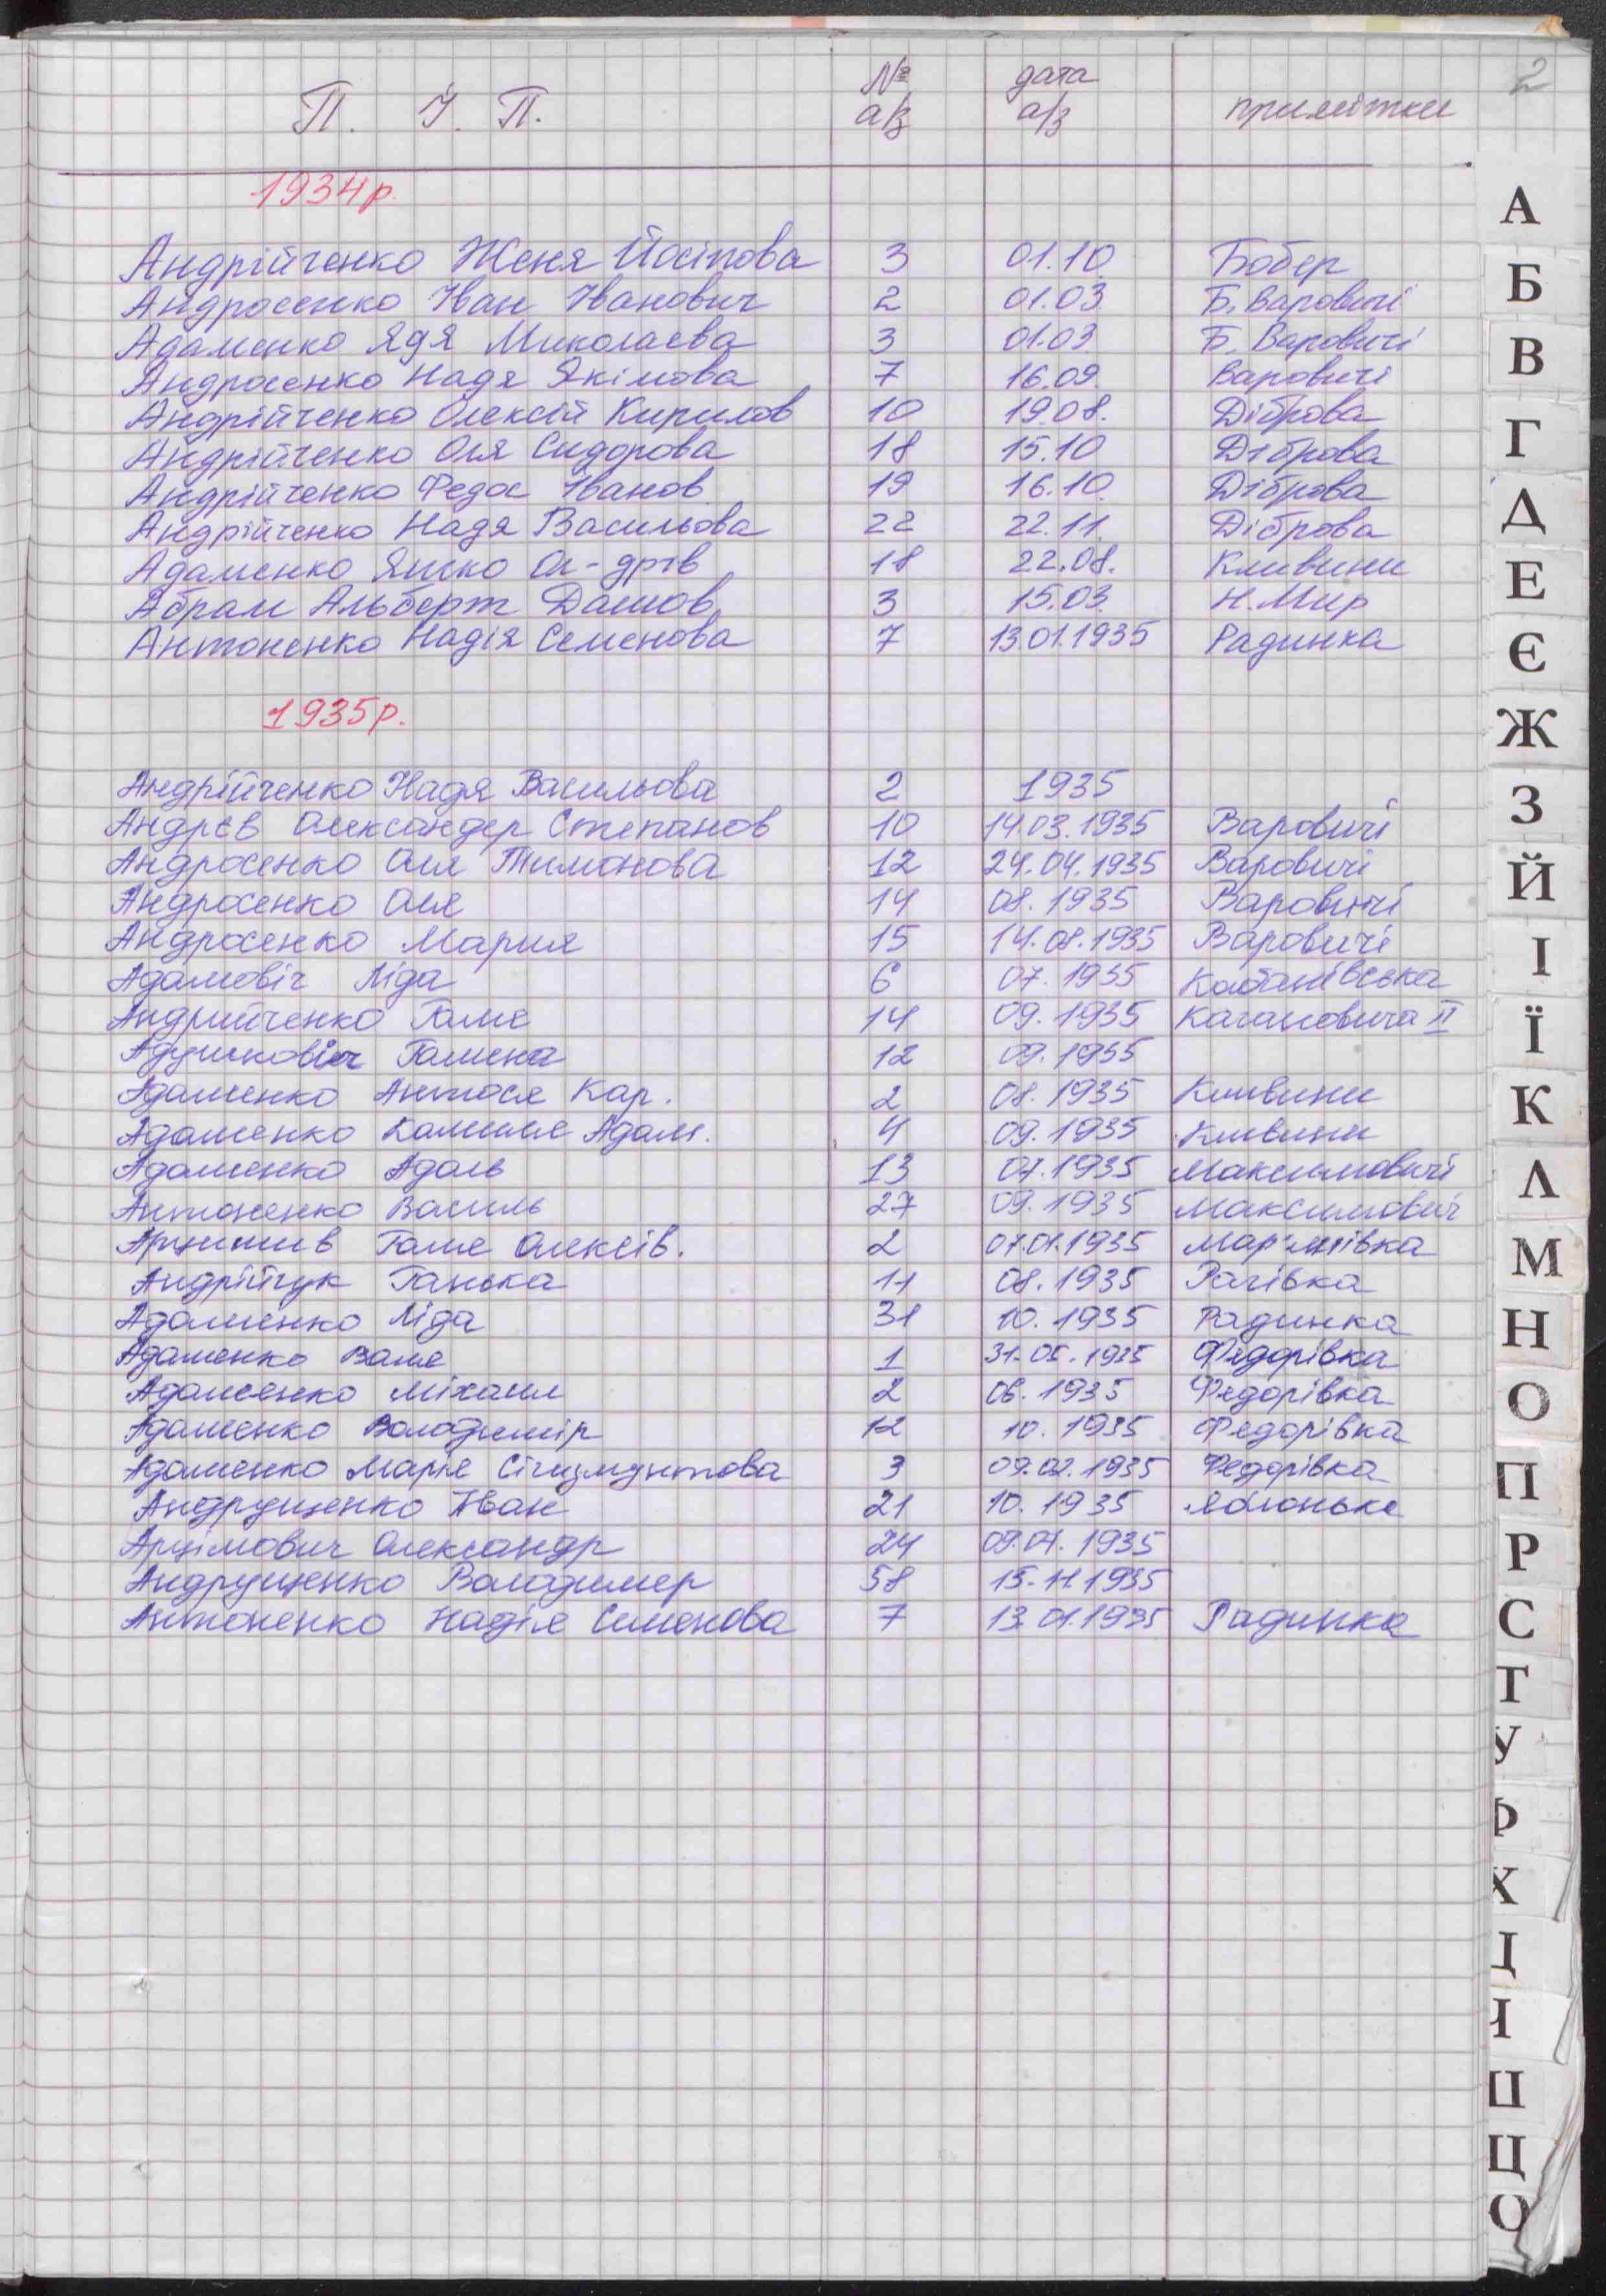 2
П. І. П. № а/з дата а/з примітки
1934р.
Андрійченко Женя Йосіпова 3 01.10 Бобер
Андросенко Іван Іванович 2 01.03 Б. Варовичі
Адаменко Ядя Миколаєва 3 01.03 Б. Варовичі
Андросенко Надя Якімова 7 16.09. Варовичі
Андрійченко Олексій Кирилов 10 19.08. Діброва
Андрійченко Оля Сидорова 18 15.10 Діброва
Андрійченко Федос Іванов 19 16.10. Діброва
Андрійченко Надя Васильова 22 22.11. Діброва
Адаменко Яшко Ол-дрів 18 22.08. Кливини
Абрам Альберт Дашов 3 15.03. Н. Мир
Антоненко Надія Семенова 7 13.01.1935 Радинка
1935р.
Андрійченко Надя Васильова 2 1935
Андрєв Олександер Степанов 10 14.03.1935 Варовичі
Андросенко Оля Тимонова 12 24.04.1935 Варовичі
Андросенко Оля 14 08.1935 Варовичі
Андросенко Мария 15 14.08.1935 Варовичі
Адамовіч Ліда 6 07.1935
Андрийченко Галя 14 09.1935 Кагановича ІІ
Галина 12 09.1935
Адаменко Антося Кар. 2 08.1935 Кливини
Адаменко Камиля Адам. 4 09.1935 Кливини
Адаменко Адоль 13 07.1935 Максимовичі
Антоненко Василь 27 09.1935 Максимович
Галя Олексів. 2 07.01.1935 Мар'янівка
Андрійчук Ганька 11 08.1935 Рагівка
Адаменко Ліда 31 10.1935 Радинка
Адаменко Валя 1 31.05.1935 Федорівка
Адаменко Міхаил 2 06.1935 Федорівка
Адаменко Володимір 12 10.1935 Федорівка
Адаменко Марія Сігизмунтова 3 09.02.1935 Федорівка
Андрущенко Іван 21 10.1935 Яблонька
Арцімович Олександр 24 09.07.1935
Андрущенко Володимер 58 15.11.1935
Антоненко Надія Семенова 7 13.01.1935 Радинка
А
Б
В
Г
Д
Е
Є
Ж
З
Й
І
Ї
К
Л
М
Н
О
П
Р
С
Т
У
Ф
Х